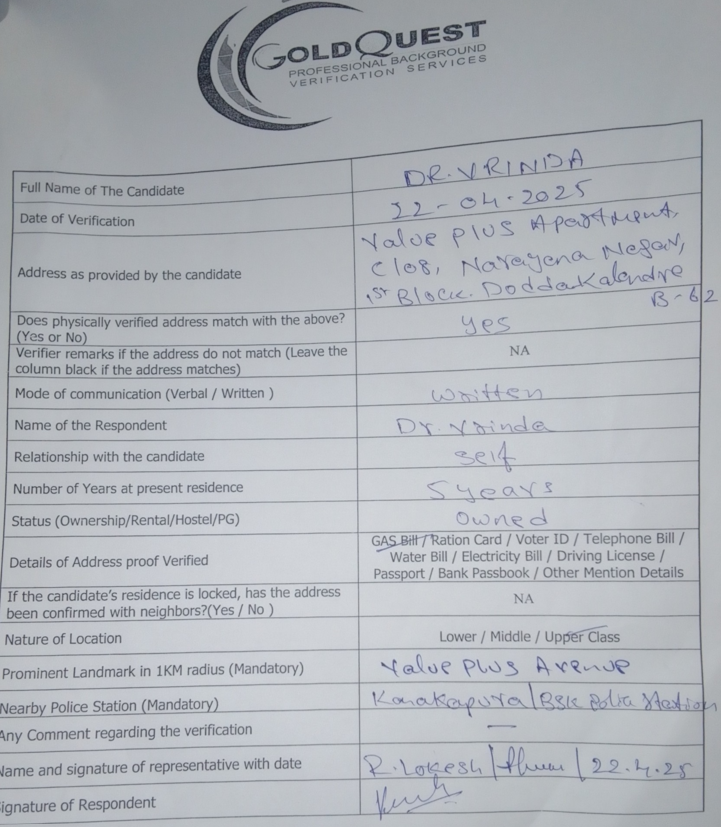 GOLDQUEST
PROFESSIONAL BACKGROUND
VERIFICATION SERVICES
Full Name of The Candidate
DR. VRINDA
Date of Verification
22-04-2025
Address as provided by the candidate
Value Plus Apartment,
C108, Narayena Negar,
1st Block. Doddakalendre
B-62
Does physically verified address match with the above?
(Yes or No)
yes
Verifier remarks if the address do not match (Leave the
column black if the address matches)
NA
Mode of communication (Verbal / Written )
written
Name of the Respondent
Dr. Vrinda
Relationship with the candidate
self
Number of Years at present residence
5 years
Status (Ownership/Rental/Hostel/PG)
Owned
Details of Address proof Verified
GAS Bill / Ration Card / Voter ID / Telephone Bill /
Water Bill / Electricity Bill / Driving License /
Passport / Bank Passbook / Other Mention Details
If the candidate's residence is locked, has the address
been confirmed with neighbors?(Yes / No )
NA
Nature of Location
Lower / Middle / Upper Class
Prominent Landmark in 1KM radius (Mandatory)
Value Plus Avenue
Nearby Police Station (Mandatory)
Kanakapura / BSK Station
Any Comment regarding the verification
—
Name and signature of representative with date
R. Lokesh / 22.4.25
ignature of Respondent